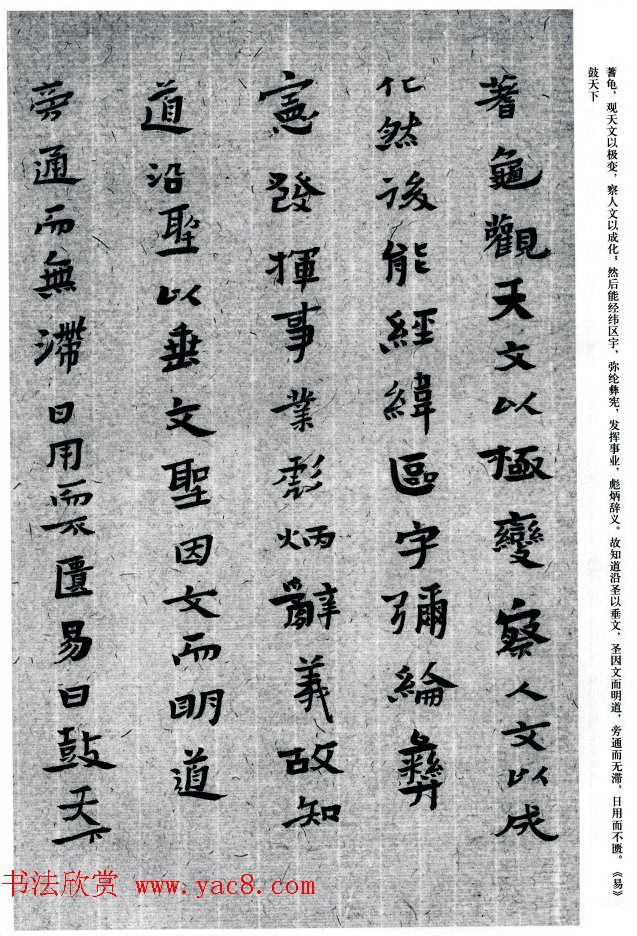 蓍龟，观天文以极变，察人文以成化；然后能经纬区宇，弥纶彝宪，发挥事业，彪炳辞义。故知道沿圣以垂文，圣因文而明道，旁通而无滞，日用而不匮。《易》
鼓天下
蓍龜觀天文以極變察人文以成
化然後能經緯區宇彌綸彝
憲發揮事業彪炳辭義故知
道沿聖以垂文聖因文而明道
旁通而無滯日用而不匱易曰鼓天下
书法欣赏 www.yac8.com